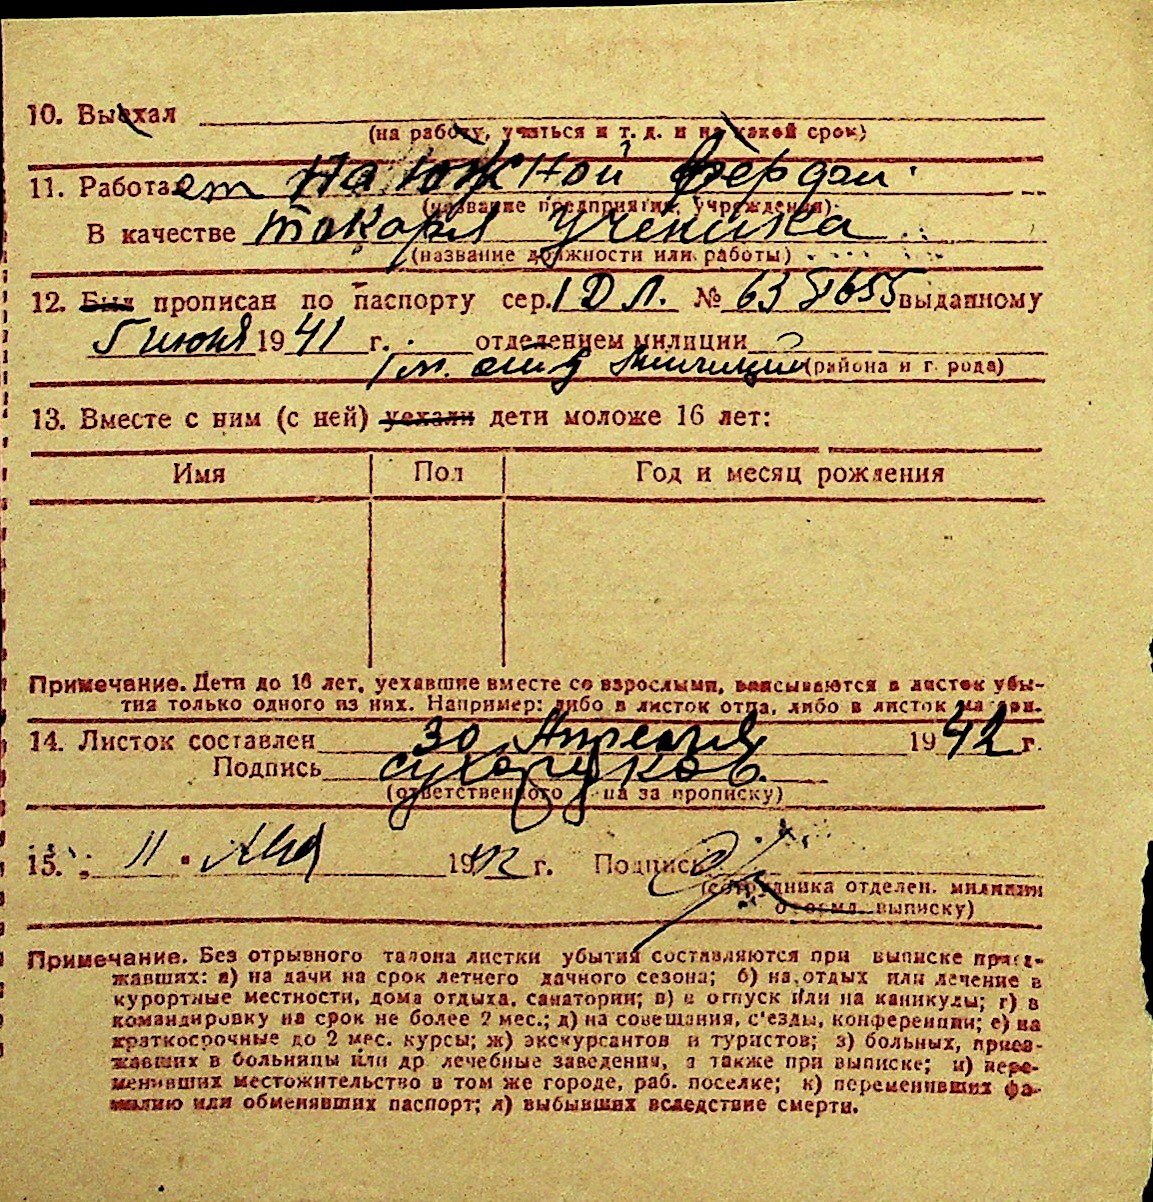 10. Выехал
(на работу, учиться и т. д. и на какой срок)
11. Работает на южной верфи
(название предприятия, учреждения)
В качестве токаря ученика
(название должности или работы)
12. Был прописан по паспорту сер. 1 ДЛ. № 638655 выданному
5 июня 1941 г. отделением милиции
милиции (района и г. рода)
13. Вместе с ним (с ней) уехали дети моложе 16 лет:
Имя Пол Год и месяц рождения
Примечание. Дети до 16 лет, уехавшие вместе со взрослыми, вписываются в листок убы-
тия только одного из них. Например: либо в листок отца, либо в листок матери.
14. Листок составлен 30 Апреля 1942 г.
Подпись Сухоруков.
(ответственного за прописку)
15. 11 мая 1942 г. Подпись
(сотрудника отделен. милиции
оформл. выписку)
Примечание. Без отрывного талона листки убытия составляются при выписке приез-
жавших: а) на дачи на срок летнего дачного сезона; б) на отдых или лечение в
курортные местности, дома отдыха, санатории; в) в отпуск или на каникулы; г) в
командировку на срок не более 2 мес.; д) на совещания, с'езды, конференции; е) на
краткосрочные до 2 мес. курсы; ж) экскурсантов и туристов; з) больных, приез-
жавших в больницы или др лечебные заведения, а также при выписке; и) пере-
менивших местожительство в том же городе, раб. поселке; к) переменивших фа-
милию или обменявших паспорт; л) выбывших вследствие смерти.